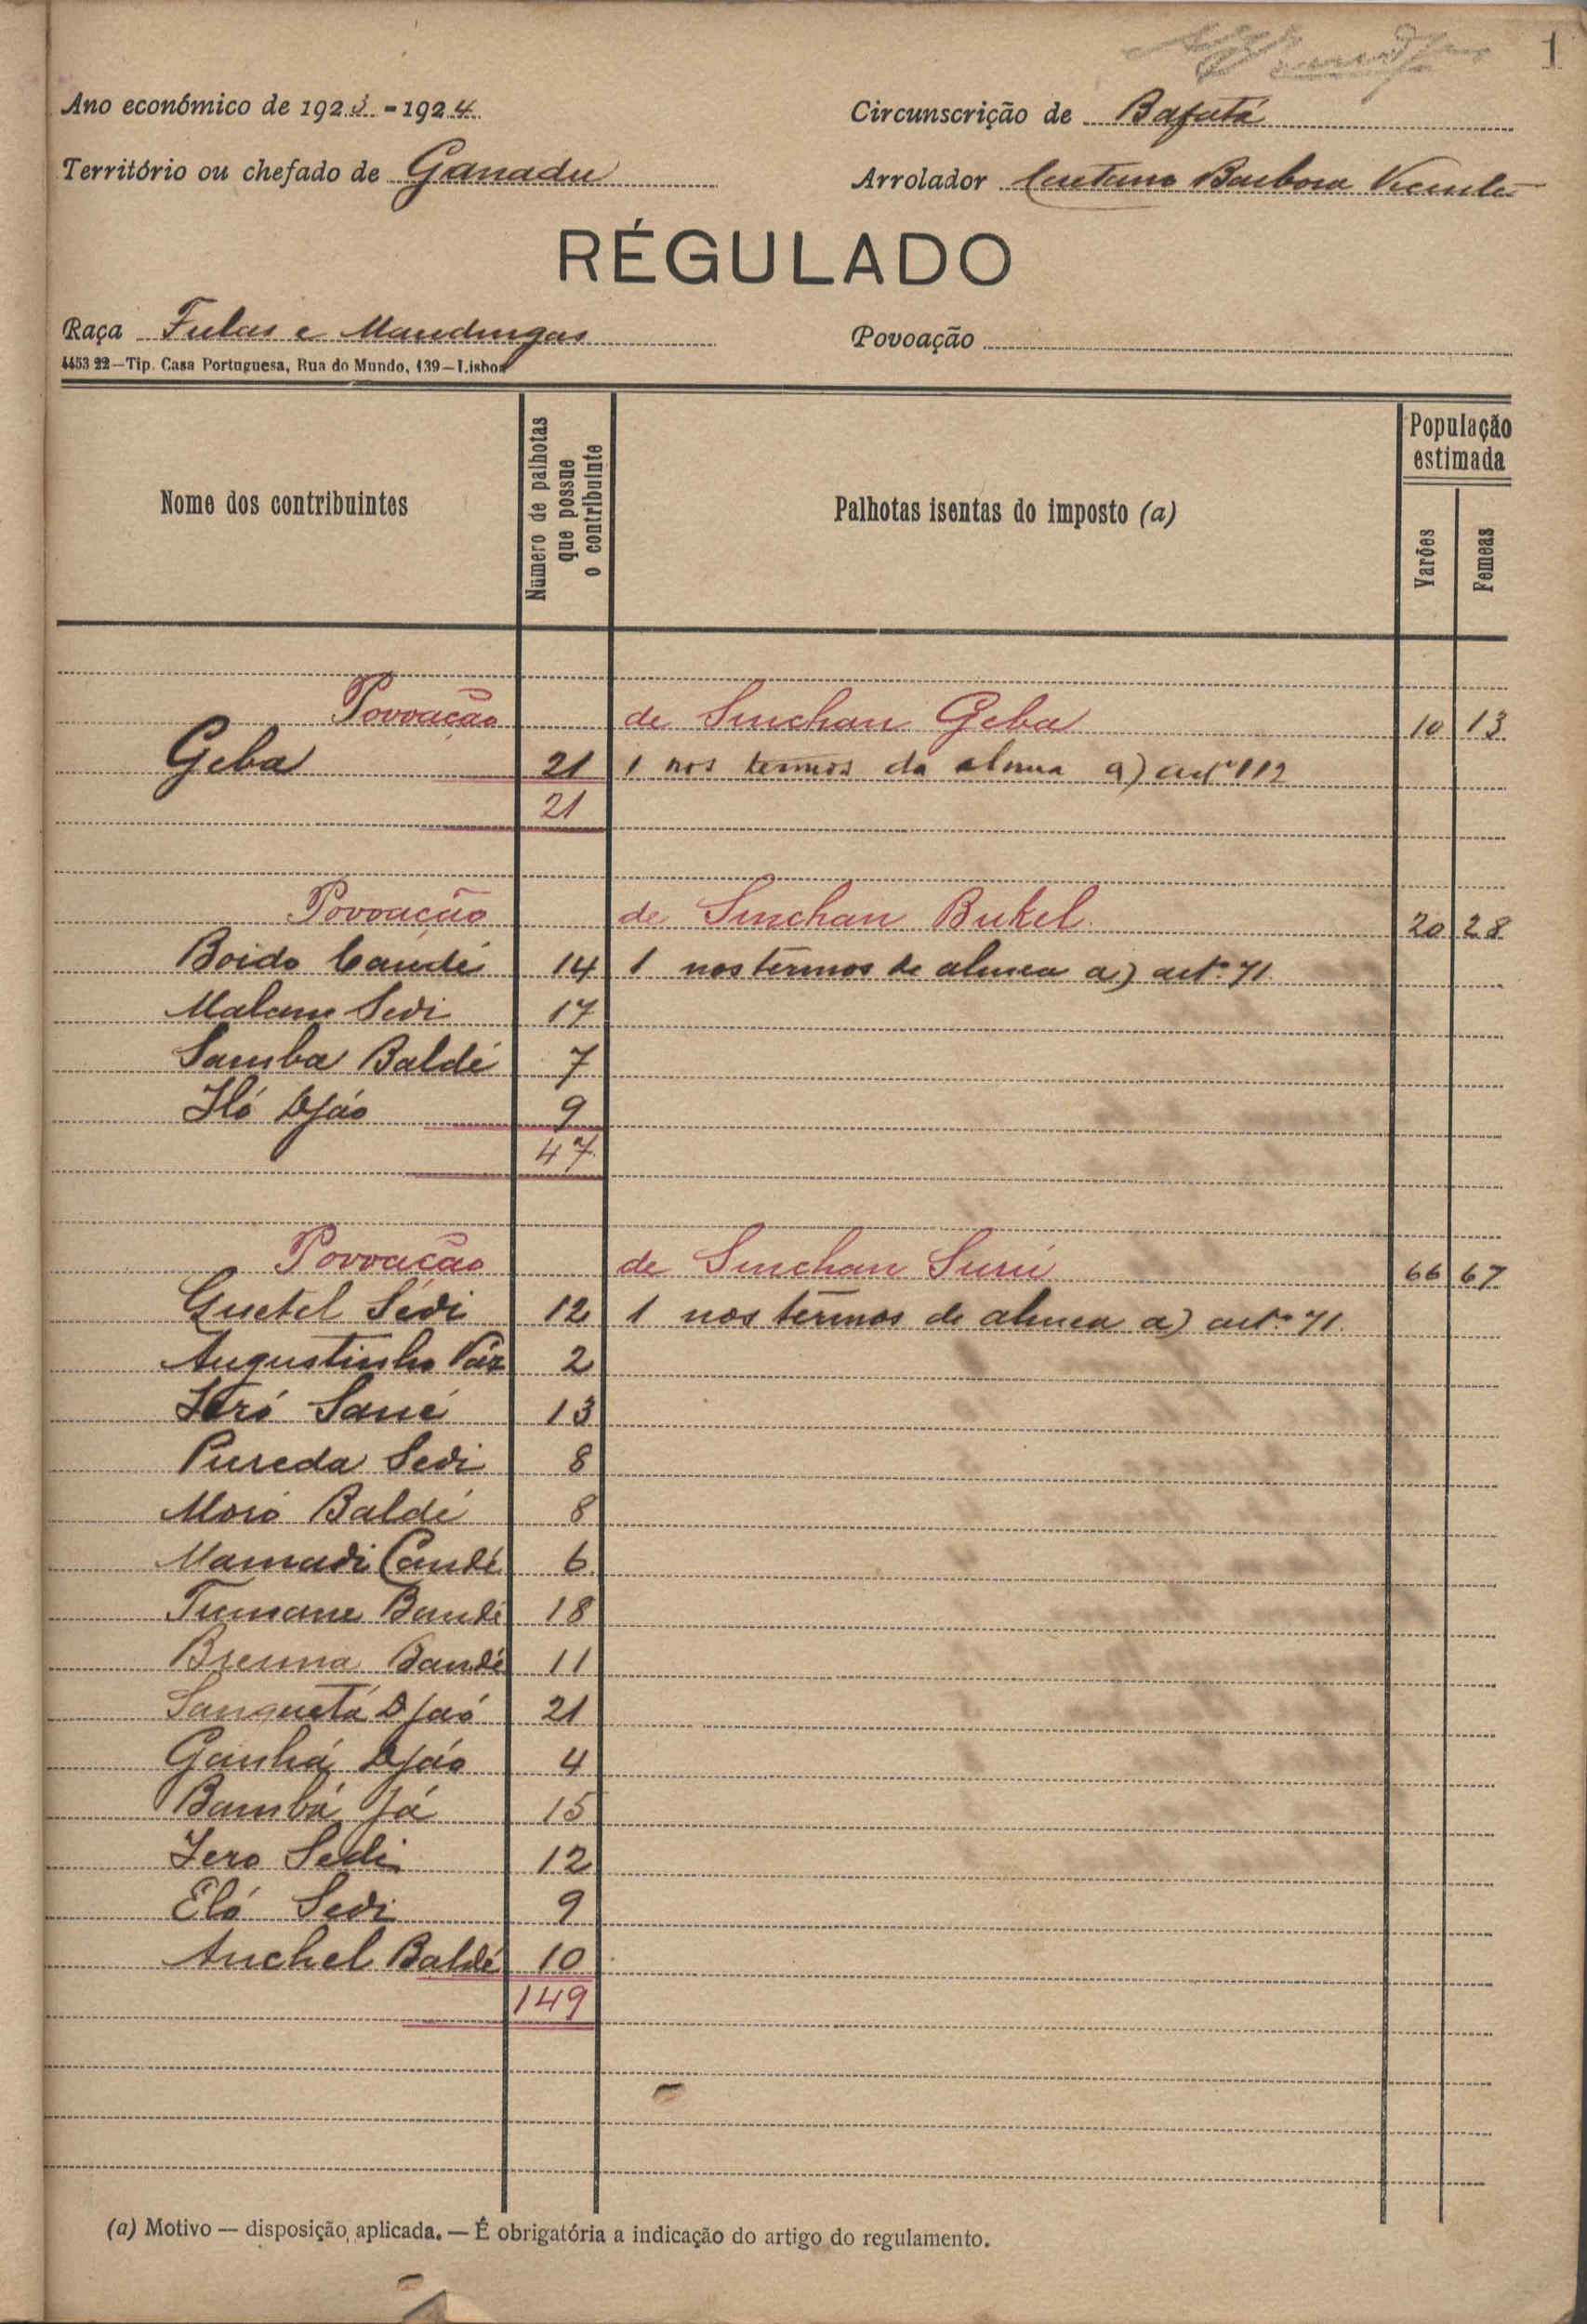 1
Ano económico de 1923-1924
Circunscrição de Bafatá
Território ou chefado de Ganadu
Arrolador Caetano Barbosa Vicente
RÉGULADO
Raça Fulas e Mandingas
Povoação
4453 22—Tip. Casa Portuguesa, Rua do Mundo, 139—Lisboa
Nome dos contribuintes
Número de palhotas que possue o contribuinte
Palhotas isentas do imposto (a)
População estimada
Varões
Femeas
Povoação de Sinchan Geba 10 13
Geba 21 1 nos termos da alinea a) artº 112
21
Povoação de Sinchan Bukel 20 28
Boido Candé 14 1 nos termos de alinea a) artº 71
Malam Sedi 17
Samba Baldé 7
Iló Djáo 9
47
Povoação de Sinchan Surú 66 67
Guetel Sédi 12 1 nos termos de alinea a) artº 71
Augustinho Váz 2
Iéró Sané 13
Pureda Sedi 8
Moró Baldé 8
Mamadi Candé 6
Tumane Bandé 18
Brema Bandé 11
Sanquetá Djaó 21
Ganhá Djáo 4
Bambá Já 15
Iero Sedi 12
Eló Sedi 9
Anchel Baldé 10
149
(a) Motivo — disposição aplicada. — É obrigatória a indicação do artigo do regulamento.